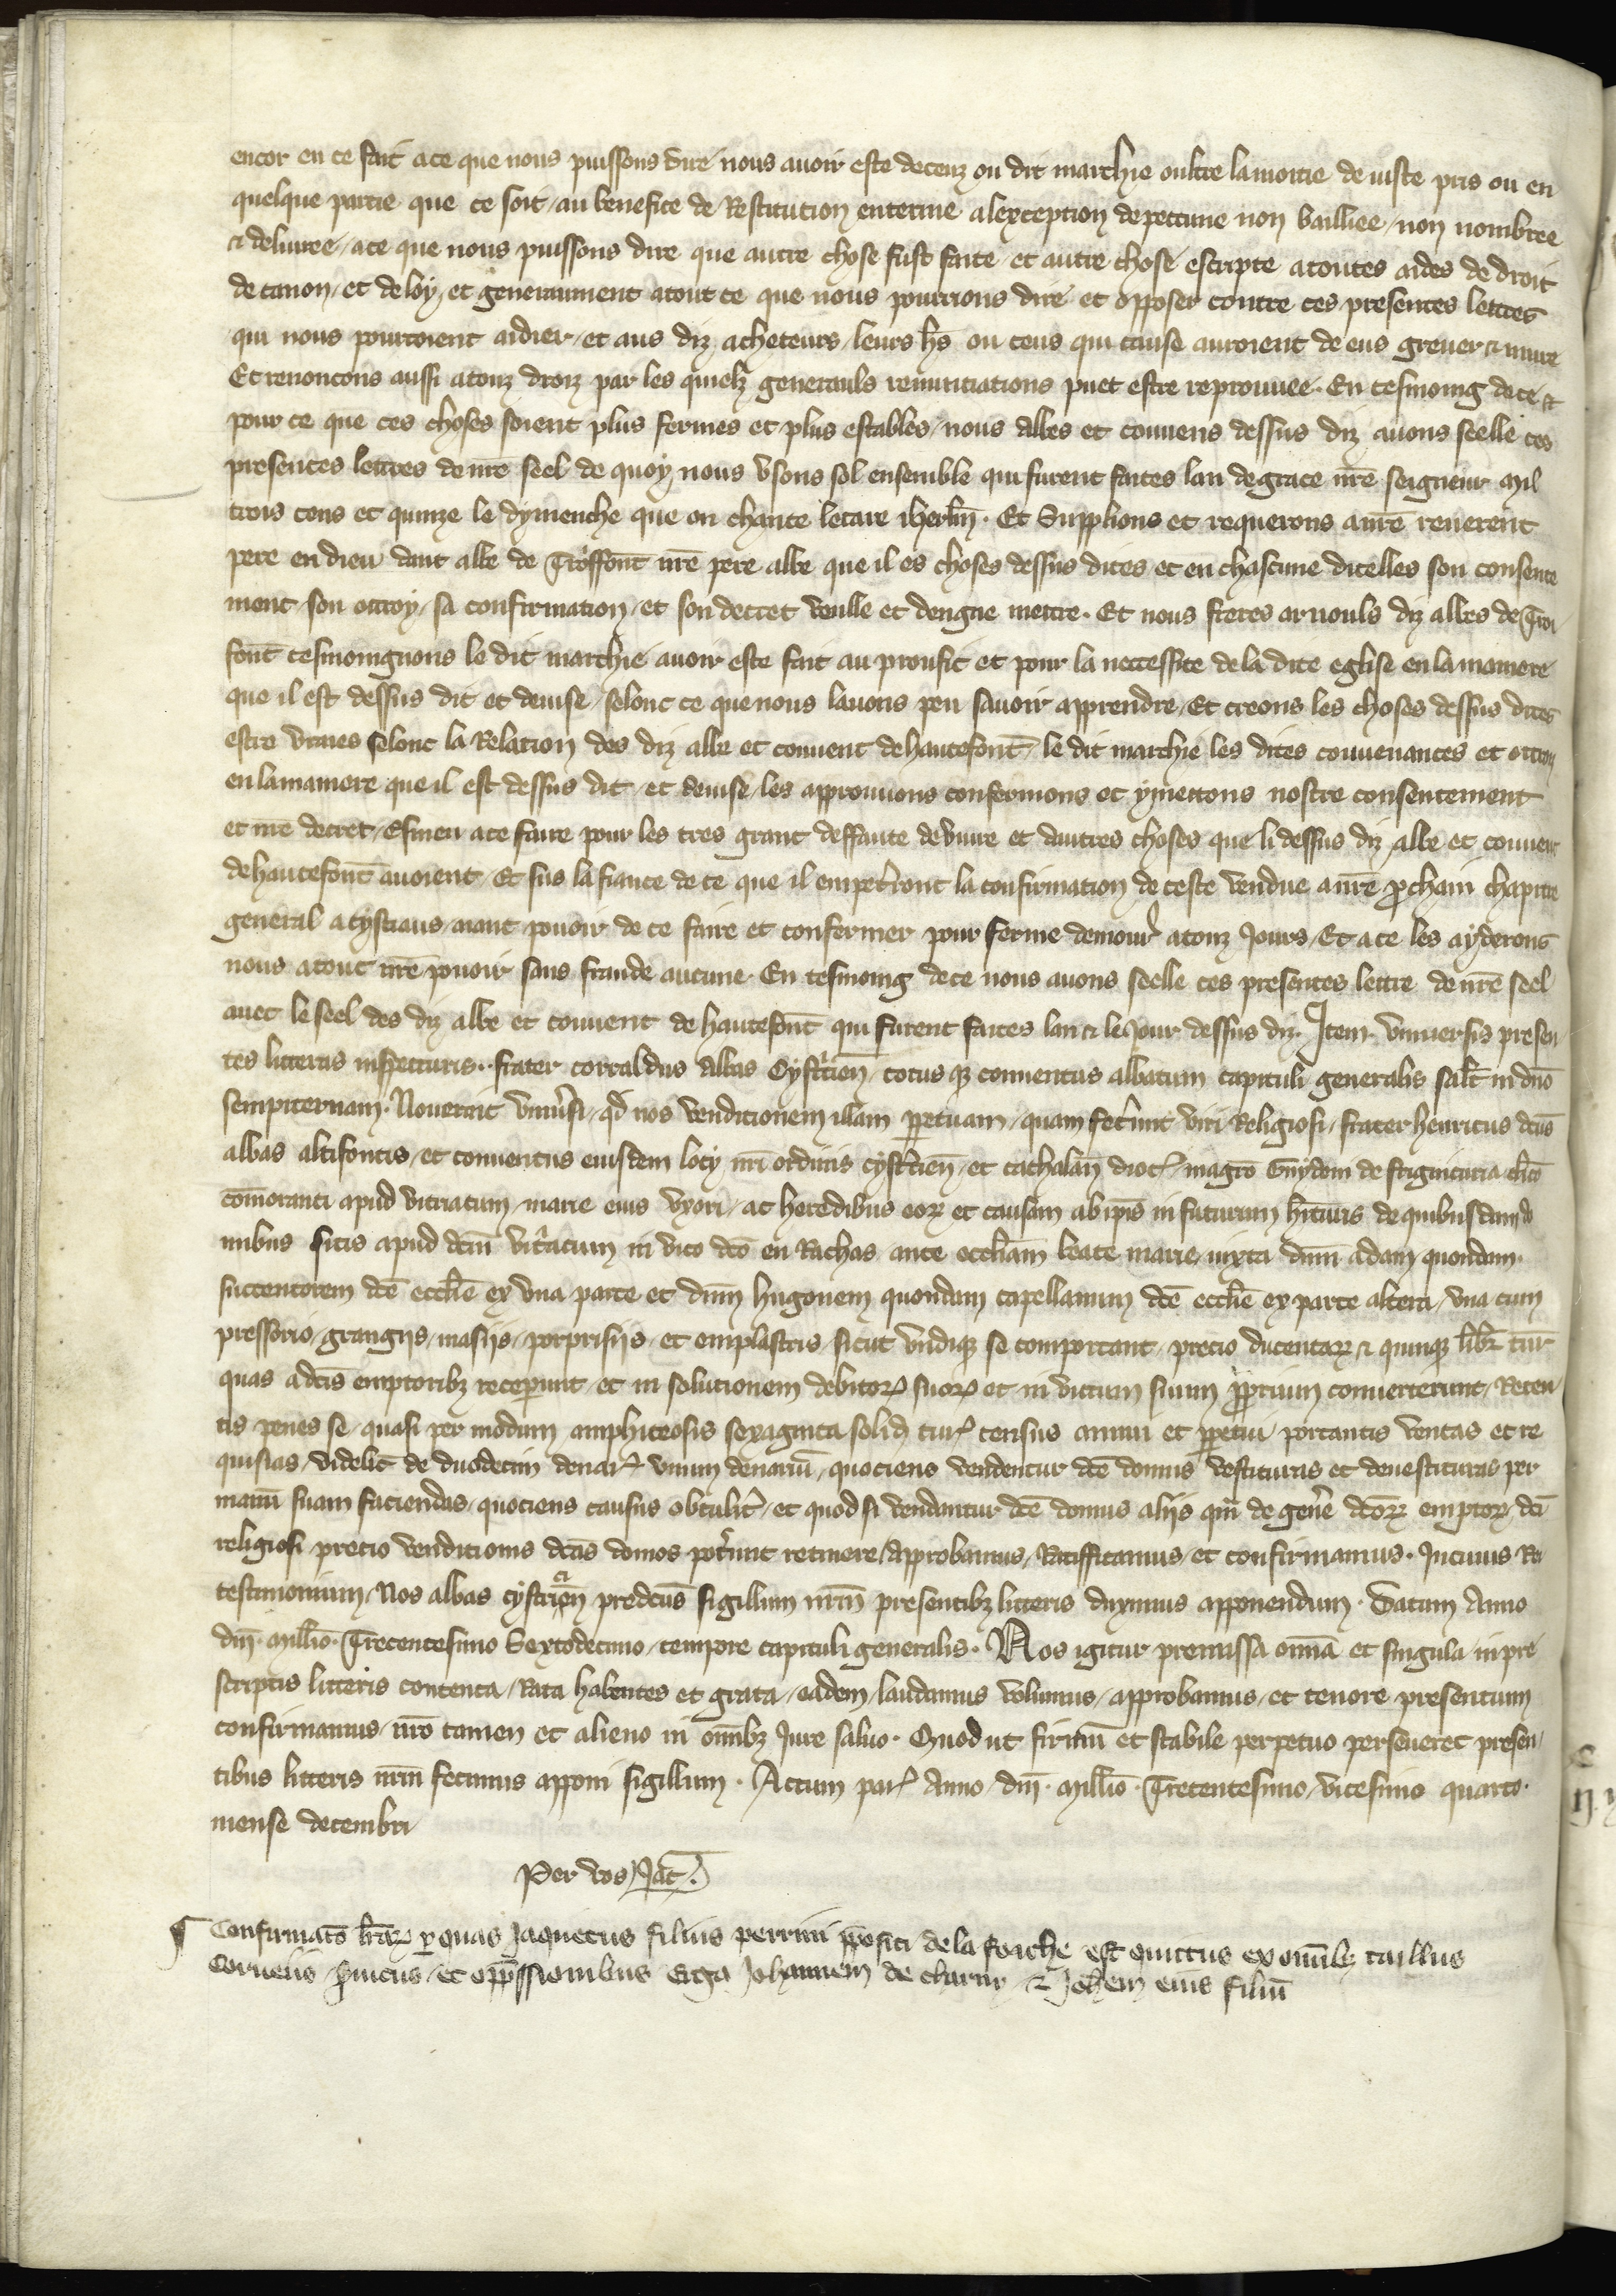 encor en ce fait a ce que nous puissons dire nous auoir este deceuz ou dit marchie oultre la moitie de iuste pris ou en
quelque partie que ce soit / au benefice de Restitution enterine a lexception de peccune non bailliee / non nombree
& deliuree / a ce que nous puissons dire que autre chose fust faite et autre chose escripte a toutes aides de droit
de canon / et de loy / et generaument a tout ce que nous pourrions dire et opposer contre ces presentes lettres
qui nous pourroient aidier / et aus diz acheteurs / leurs hrs ou ceus qui cause auroient de eus greuer & nuire
Et renoncons aussi a touz droiz par les quielx generauls renunciations puet estre reprouuee. En tesmoing de ce &
pour ce que ces choses soient plus fermes et plus estables / nous abbes et conuens dessus diz auons seelle ces
presentes lettres de nre seel de quoy nous vsons sol ensemble qui furent faites lan de grace nre seigneur mil
trois cens et quinze le dymenche que on chante letare iherlm. Et Supplions et requerons a nre reuerent
pere en dieu dant abbe de Troiffont nre pere abbe que il es choses dessus dites et en chascune dicelles son consente
ment / son ottroy / sa confirmation / et son decret veulle et dengne mettre. Et nous freres arnouls diz abbes de Troi
font tesmoingnons le dit marchie auoir este fait au proufit et pour la necessite de la dite eglise en la maniere
que il est dessus dit et deuise / selonc ce que nous lauons peu sauoir apprendre / Et creons les choses dessus dites
estre vraies selonc la Relation des diz abbe et conuent de hautefont / le dit marchie les dites conuenances et ottroy
en la maniere que il est dessus dit / et deuise / les approuuons confermons et y mettons nostre consentement
et nre decret / Esmeu a ce faire pour les tres grant deffaute de viure et dautres choses que li dessus diz abbe et conuent
de hautefont auoient / Et sus la fiance de ce que il empetront la confirmation de ceste vendue a nre pchain chapitre
general a cystiaus / aiant pouoir de ce faire et confermer pour ferme demour a touz Jours / Et a ce les ayderons
nous a tout nre pouoir sans fraude aucune. En tesmoing de ce nous auons seelle ces presentes lettre de nre seel
auec le seel des diz abbe et conuent de hautefont qui furent faites lan & le Jour dessus diz. Item. vniuersis presen
tes litteras inspecturis.. frater corraldus abbas Cystcien / totus qz conuentus abbatum capituli generalis salt in dno
sempiternam. Nouerint vniusi / qd nos venditionem illam ppetuam / quam fecunt viri Religiosi / frater henricus dcus
abbas altifontis / et conuentus eiusdem locy nri ordinis cystcien / et cathalan dioc / magro Guydoni de frignicuria clico
comoranti apud vitriacum / marie eius vxori / ac heredibus eorz et causam ab ipis in futurum hituris de quibusdam do
mibus sitis apud dcm vitacum in vico dco en Rachas ante eccliam beate marie / iuxta dnm adam quondam
succentorem dce ecclie ex vna parte et dnm hugonem quondam capellanum dce ecclie ex parte altera / vna cum
pressorio / grangiis / masiis / porprisiis / et emplastris / sicut vndiqz se comportant / precio ducentarz & quinqz libr tur
quas a dcis emptoribz receperunt / et in solutionem debitorz suorz et in victum suum pprium conuerterunt / Reten
tis penes se / quasi per modum amphiteosis sexaginta solid tur census annui et ppetui portantis ventas et re
quisias / videlict de duodecim denar vnum denariu / quociens vendentur dce domus vestituras et deuestituras per
manu suam faciendas / quociens causus obtulit / et quod si vendantur dce domus aliis qm de gene dcorz emptorz / dci
religiosi / precio venditionis dcas domos potunt retinere / Approbamus / Ratifficamus / et confirmamus. In cuius Rei
testimonium / Nos abbas cystrien predcus sigillum nrm presentibz litteris duximus apponendum. Datum Anno
dni. Millio. Trecentesimo Sextodecimo / tempore capituli generalis. Nos igitur premissa omia et singula in pre
scriptis litteris contenta / Rata habentes et grata / eadem / laudamus volumus / approbamus / et tenore presentium
confirmamus / nro tamen et alieno in omibz Jure saluo. Quod ut firmu et stabile perpetuo perseueret presen
tibus litteris nrm fecimus apponi sigillum. Actum par Anno / dni. Millio. Trecentesimo / vicesimo quarto.
mense decembri
Per vos / Jac.
¶ Confirmato lrarz p quas Jaquetus filius perrini ppositi de la frache est quittus ex omibz tailliis
Corueiis / suicus / et oppssionibus erga Johannem de charny & Johem eius filiu